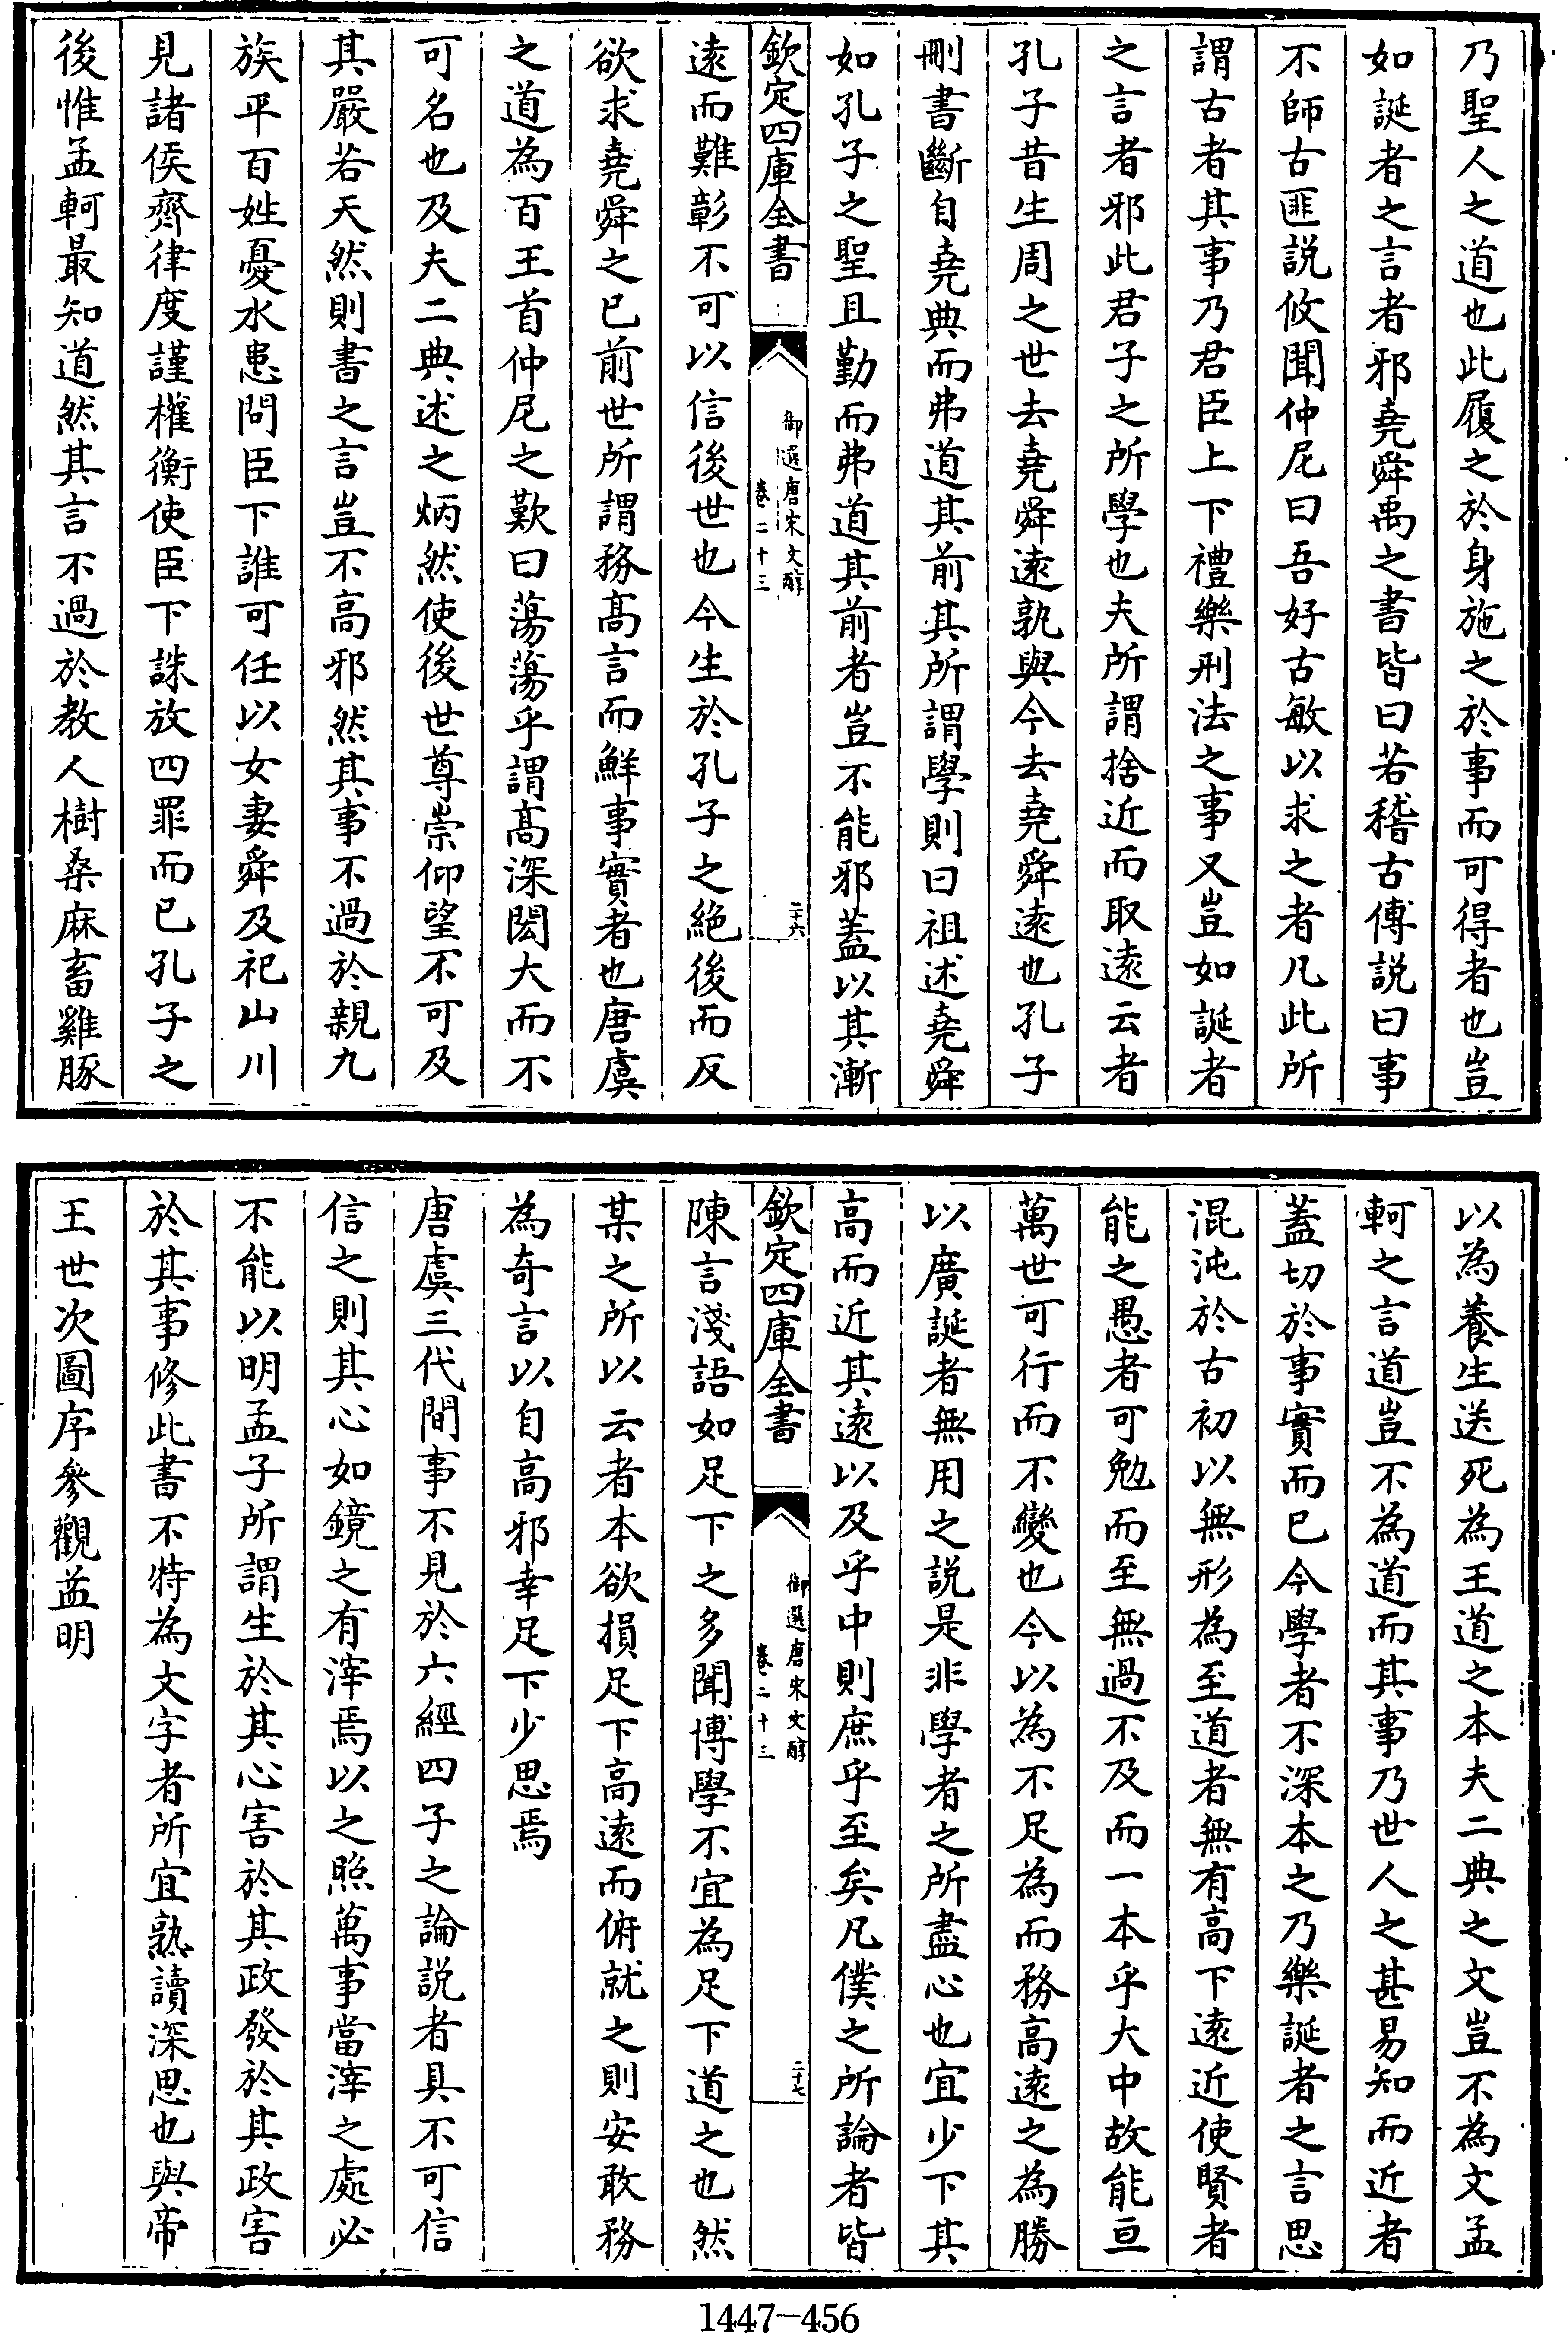 乃聖人之道也此履之於身施之於事而可得者也豈
如誕者之言者邪堯舜禹之書皆曰若稽古傅説曰事
不師古匪説攸聞仲尼曰吾好古敏以求之者凡此所
謂古者其事乃君臣上下禮樂刑法之事又豈如誕者
之言者邪此君子之所學也夫所謂捨近而取逺云者
孔子昔生周之世去堯舜逺孰與今去堯舜逺也孔子
刪書斷自堯典而弗道其前其所謂學則曰祖述堯舜
如孔子之聖且勤而弗道其前者豈不能邪葢以其漸
欽定四庫全書
御選唐宋文醇
卷二十三
二十六
逺而難彰不可以信後世也今生於孔子之絶後而反
欲求堯舜之已前世所謂務髙言而鮮事實者也唐虞
之道為百王首仲尼之歎曰蕩蕩乎謂髙深閎大而不
可名也及夫二典述之炳然使後世尊崇仰望不可及
其嚴若天然則書之言豈不高邪然其事不過於親九
族平百姓憂水患問臣下誰可任以女妻舜及祀山川
見諸侯齊律度謹權衡使臣下誅放四罪而已孔子之
後惟孟軻最知道然其言不過於教人樹桑麻畜雞豚
以為養生送死為王道之本夫二典之文豈不為文孟
軻之言道豈不為道而其事乃世人之甚易知而近者
葢切於事實而已今學者不深本之乃樂誕者之言思
混沌於古初以無形為至道者無有高下逺近使賢者
能之愚者可勉而至無過不及而一本乎大中故能亘
萬世可行而不變也今以為不足為而務高逺之為勝
以廣誕者無用之説是非學者之所盡心也宜少下其
高而近其逺以及乎中則庶乎至矣凡僕之所論者皆
欽定四庫全書
御選唐宋文醇
卷二十三
二十七
陳言淺語如足下之多聞博學不宜為足下道之也然
某之所以云者本欲損足下高逺而俯就之則安敢務
為奇言以自高邪幸足下少思焉
唐虞三代間事不見於六經四子之論説者具不可信
信之則其心如鏡之有滓焉以之照萬事當滓之處必
不能以明孟子所謂生於其心害於其政發於其政害
於其事修此書不特為文字者所宜熟讀深思也與帝
王世次圖序參觀益明
1447-456